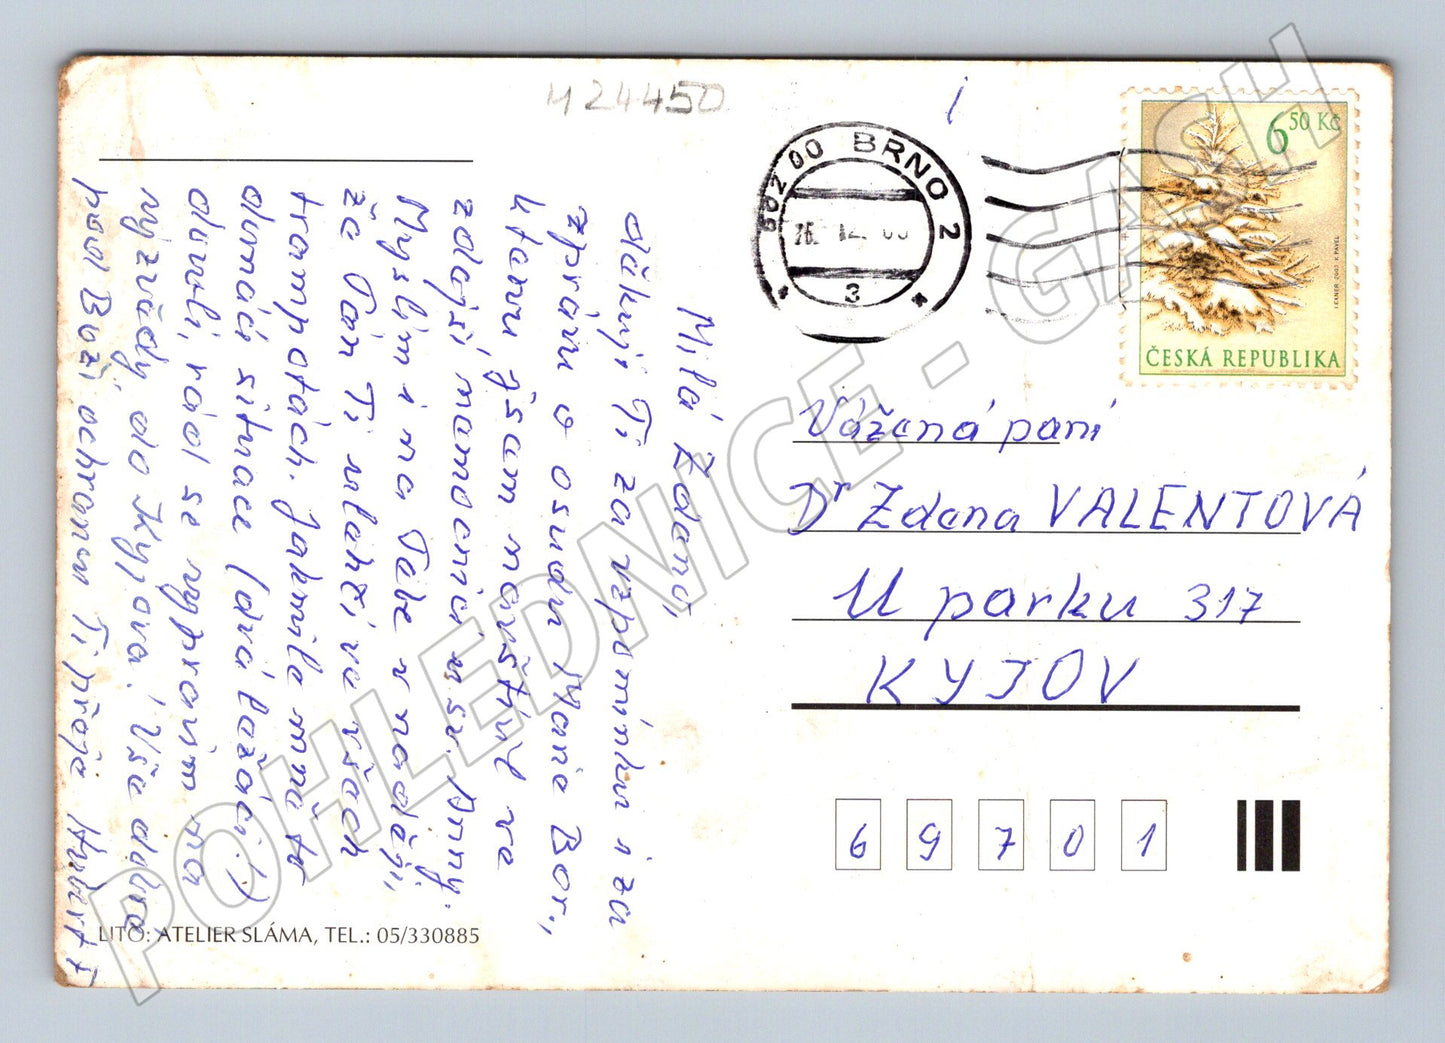 M24450
602 00 BRNO 2
26. 12. 03
3
6 50 Kč
ČESKÁ REPUBLIKA
Milá Zdeno,
děkuji Ti za vzpomínku i za
zprávu o osudu Marie Bor.,
kterou jsem navštívil ve
zdejší nemocnici u sv. Anny.
Myslím i na Tebe v naději,
že Pán Ti ulehčí ve všech
trampotách. Jakmile mně to
domácí situace (dvá ležáci!)
dovolí, rád se vypravím na
výzvědy do Kyjova! Vše dobré
pod Boží ochranou Ti přeje Hubert F
Vážená paní
Dr Zdena VALENTOVÁ
U parku 317
KYJOV
69701
LITO: ATELIER SLÁMA, TEL.: 05/330885
POHLEDNICE - GASH